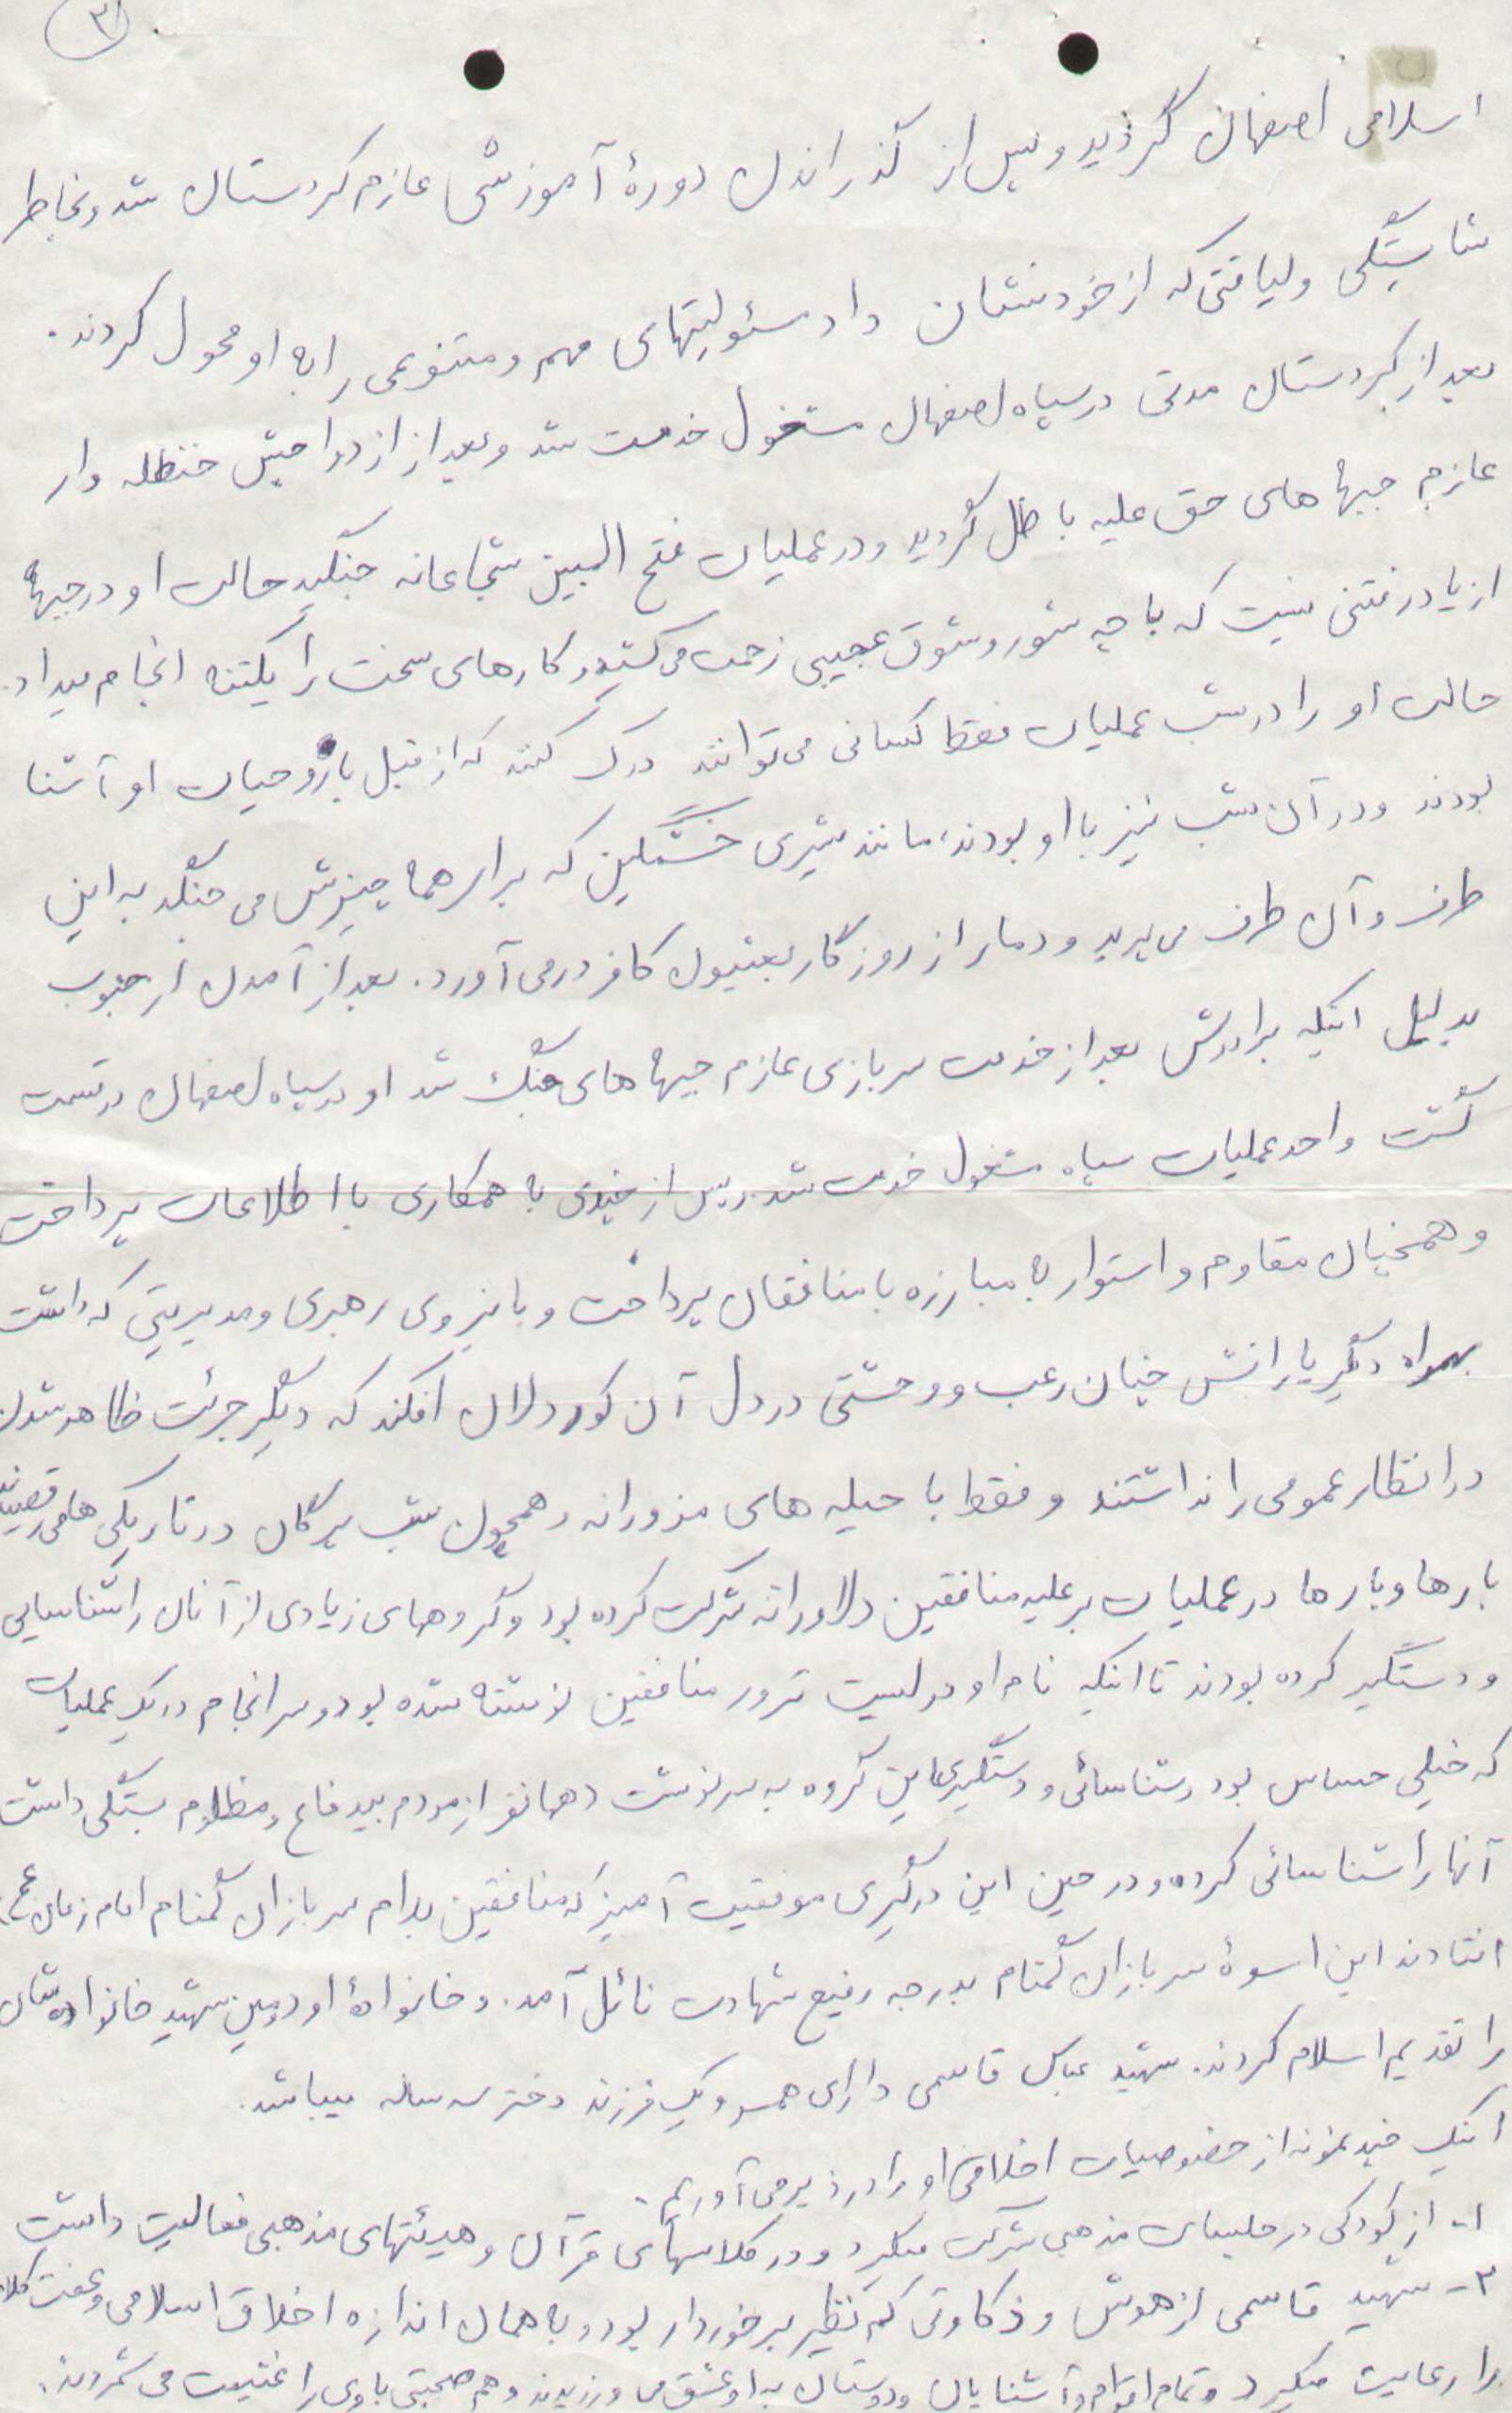 ۳
اسلامی اصفهان گردید و پس از گذراندن دورهٔ آموزشی عازم کردستان شد و بخاطر
شایستگی و لیاقتی که از خود نشان داد مسئولیتهای مهم و متنوعی را به او محول کردند.
بعد از کردستان مدتی در سپاه اصفهان مشغول خدمت شد و بعد از ازدواجش حنظله وار
عازم جبهه های حق علیه باطل گردید و در عملیات فتح المبین شجاعانه جنگید حالت او در جبهه
از یاد رفتنی نیست که با چه شور و شوق عجیبی زحمت می کشید و کارهای سخت را یکتنه انجام میداد.
حالت او را در شب عملیات فقط کسانی می توانند درک کنند که از قبل با روحیات او آشنا
بودند و در آن شب نیز با او بودند، مانند شیری خشمگین که برای همه چیزش می جنگد به این
طرف و آن طرف می پرید و دمار از روزگار بعثیون کافر در می آورد. بعد از آمدن از جنوب
بدلیل اینکه برادرش بعد از خدمت سربازی عازم جبهه های جنگ شد او در سپاه اصفهان در قسمت
گشت واحد عملیات سپاه مشغول خدمت شد. و پس از چندی به همکاری با اطلاعات پرداخت
و همچنان مقاوم و استوار به مبارزه با منافقان پرداخت و با نیروی رهبری و مدیریتی که داشت
بهمراه دیگر یارانش چنان رعب و وحشتی در دل آن کوردلان افکند که دیگر جرئت ظاهر شدن
در انظار عمومی را نداشتند و فقط با حیله های مزورانه و همچون شب پرگان در تاریکی ها می رقصیدند
بارها و بارها در عملیات بر علیه منافقین دلاورانه شرکت کرده بود و گروهای زیادی از آنان را شناسایی
و دستگیر کرده بودند تا اینکه نام او در لیست ترور منافقین نوشته شده بود و سرانجام در یک عملیات
که خیلی حساس بود و شناسائی و دستگیری این گروه به سرنوشت دهها نفر از مردم بیدفاع و مظلوم بستگی داشت
آنها را شناسائی کرده و در حین این درگیری موفقیت آمیز که منافقین بدام سربازان گمنام امام زمان (عج)
افتادند این اسوهٔ سربازان گمنام بدرجه رفیع شهادت نائل آمد. و خانوادهٔ او دومین شهید خانواده شان
را تقدیم اسلام کردند. شهید عباس قاسمی دارای همسر و یک فرزند دختر سه ساله میباشد.
اینک چند نمونه از خصوصیات اخلاقی او را در زیر می آوریم.
۱- از کودکی در جلسات مذهبی شرکت میکرد و در کلاسهای قرآن و هیئتهای مذهبی فعالیت داشت
۲- شهید قاسمی از هوش و ذکاوتی کم نظیر برخوردار بود و به همان اندازه اخلاق اسلامی و عفت کلام
را رعایت میکرد و تمام اقوام و آشنایان و دوستان به او عشق می ورزیدند و هم صحبتی با وی را غنیمت می شمردند.